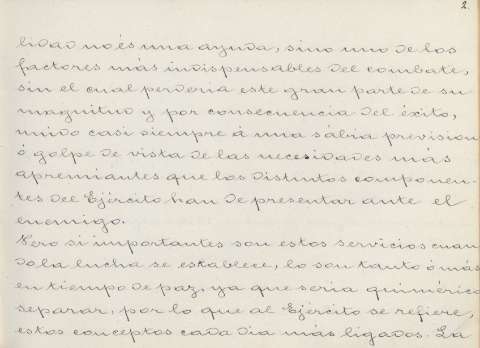 2.
lidad no és una ayuda, sino uno de los
factores más indispensables del combate,
sin el cual perderia este gran parte de su
magnitud y por consecuencia del éxito,
unido casi siempre á una sábia prevision
ó golpe de vista de las necesidades más
apremiantes que los distintos componen-
tes del Ejército han de presentar ante el
enemigo.
Pero si importantes son estos servicios cuan
do la lucha se establece, lo son tanto ó más
en tiempo de paz, ya que seria quimérico
separar, por lo que al Ejército se refiere,
estos conceptos cada dia más ligados. La